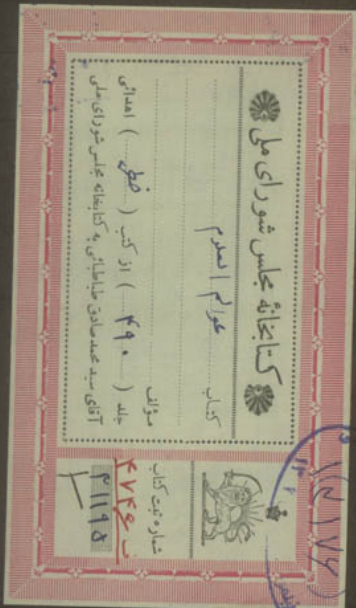 کتابخانهٔ مجلس شورای ملی
کتاب عوالم العلوم
مؤلف
جلد (۴۹۰) از کتب (خطی) اهدائی
آقای سید محمد صادق طباطبائی به کتابخانه مجلس شورای ملی
شماره ثبت کتاب
۴۱۱۹۵